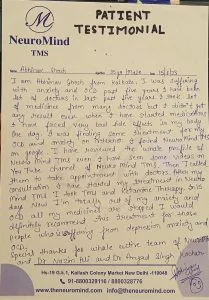 PATIENT
TESTIMONIAL
NeuroMind
TMS
I am Abhinav Ghosh from Kolkata. I was suffering
with anxiety and OCD past five years I have been
lot of doctors in last past five years I took lot
of medicines from many doctors but I didn't get
any result even when I have started medications
I have faced very bad side effects in my body
one day I was finding some treatment for my
OCD and anxiety on Internet I found NeuroMind TMS
on google I have the whole profile of
Neuro Mind TMS even I have seen some videos on
You Tube channel of Neuro Mind TMS. Then I talked
them to make appointment with doctors. After my
consultation I have started my treatment in Neuro
Mind TMS I took TMS and Ketamine Therapy. In 15
days Now I'm totally out of my anxiety and
OCD all my medicines are stopped I would
definitely recommend this treatment for those
people who suffering from depression, anxiety and
OCD.
Special thanks for whole entire team of NeuroMind
and Dr Nazim Ali and Dr Anjali Singh
Hs-19 G.F.1, Kailash Colony Market New Delhi -110048
91-8800329116 / 8800328116
www.theneuromind.com info@theneuromind.com